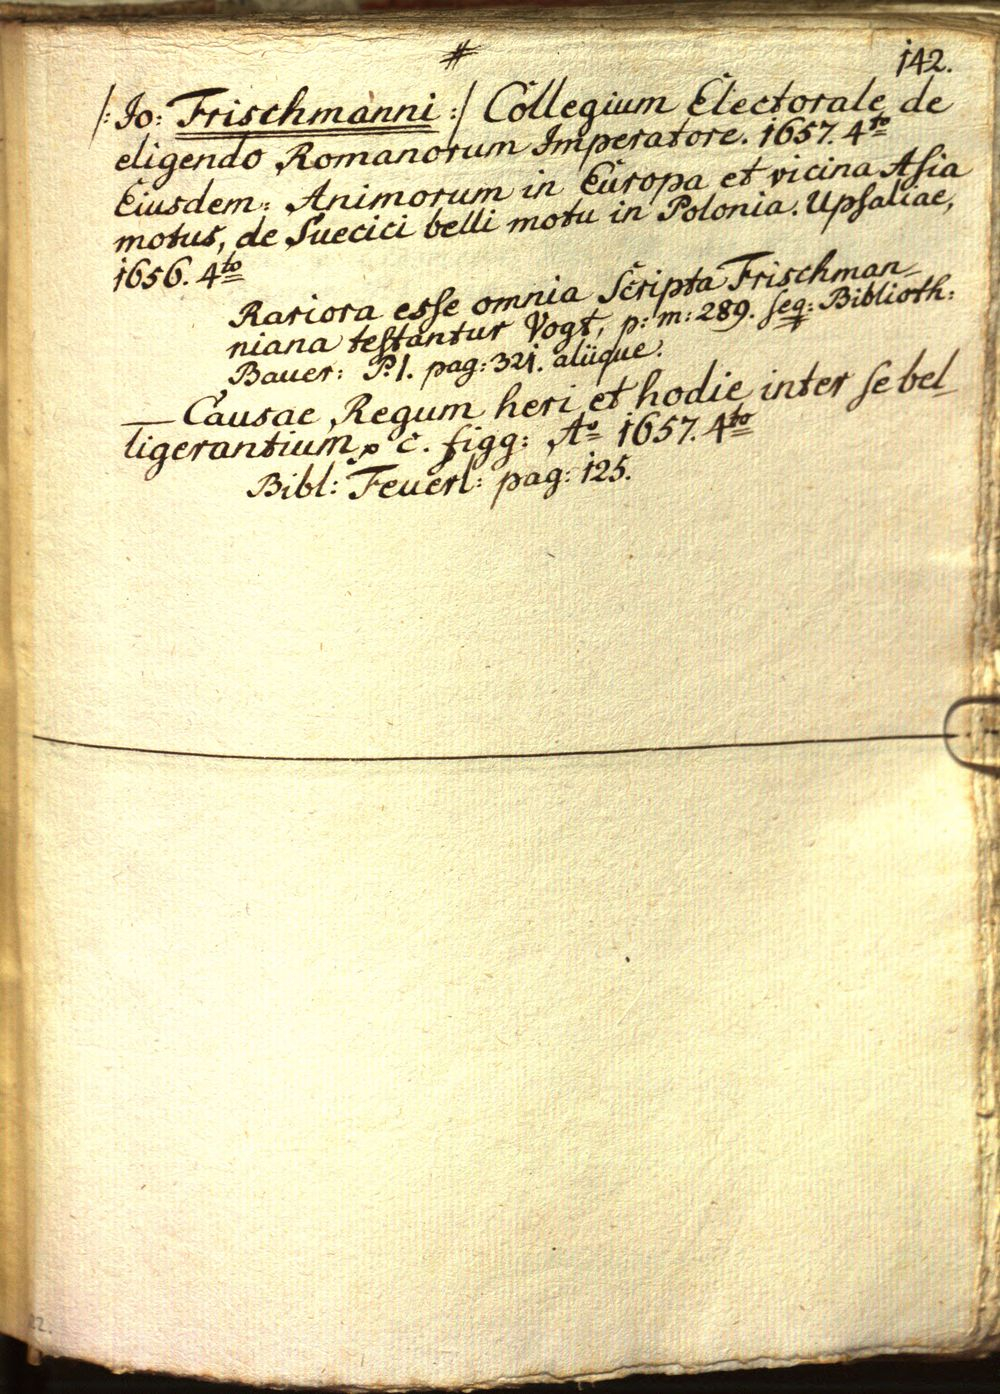 #
142.
/: Io: Frischmanni :/ Collegium Electorale de
eligendo Romanorum Imperatore. 1657. 4to
Eiusdem: Animorum in Europa et vicina Asia
motus, de Suecici belli motu in Polonia. Upsaliae,
1656. 4to
Rariora esse omnia Scripta Frischman-
niana testantur Vogt, p: m: 289. seq: Biblioth:
Bauer: P. I. pag: 321. aliique.
— Causae Regum heri et hodie inter se bel-
ligerantium, c. figg: Ao 1657. 4to
Bibl: Feuerl: pag: 125.
22.